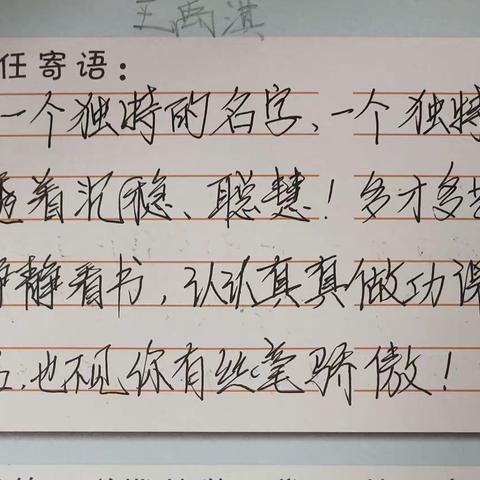 王禹淇
任寄语：
一个独特的名字、一个独特
透着沉稳、聪慧！多才多艺
静静看书，认认真真做功课
，也不见你有丝毫骄傲！